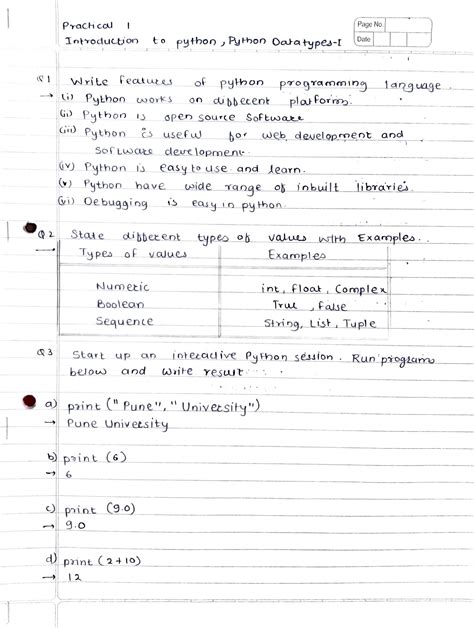 Practical 1
Page No
Date
Introduction to python, Python Datatypes-I
Q1 Write features of python programming language.
→ (i) Python works on different platforms.
(ii) Python is open source software
(iii) Python is useful for web development and
software development.
(iv) Python is easy to use and learn.
(v) Python have wide range of inbuilt libraries.
(vi) Debugging is easy in python.
Q2 State different types of values with Examples.
→ Types of values Examples
Numeric int, float, Complex
Boolean True, false
Sequence String, List, Tuple
Q3 Start up an interactive Python session. Run program
below and write result
a) print ("Pune", "University")
→ Pune University
b) print (6)
→ 6
c) print (9.0)
→ 9.0
d) print (2+10)
→ 12